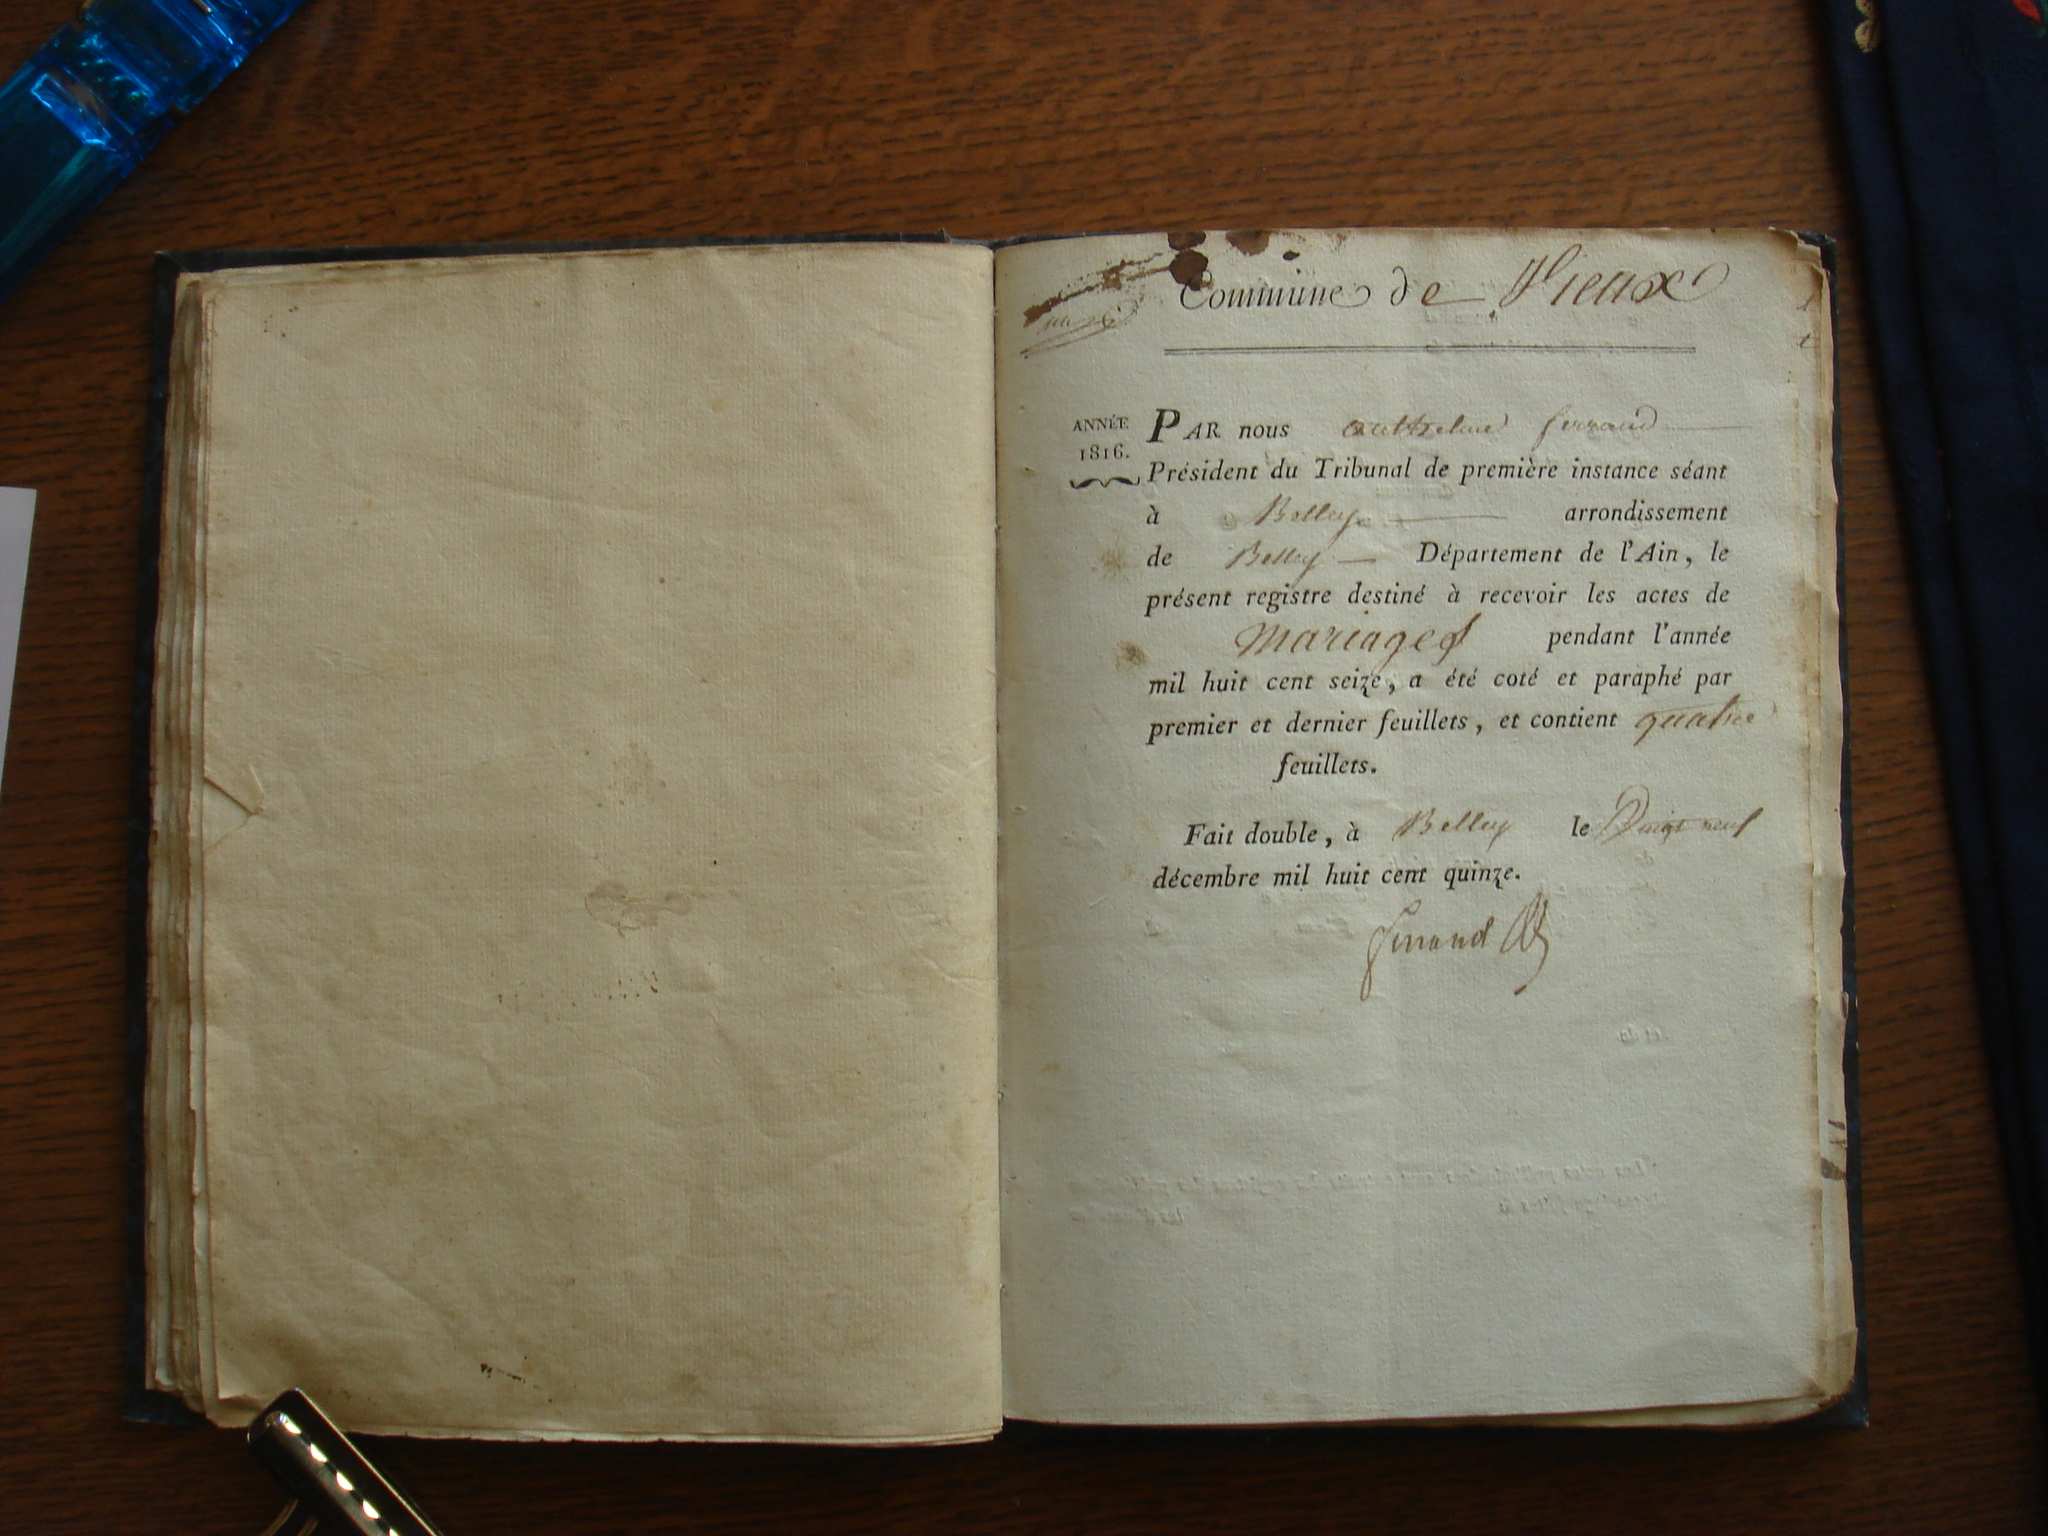 Commune de Vieux
ANNÉE
1816.
PAR nous anthelme ferrand
Président du Tribunal de première instance séant
à Belley arrondissement
de Belley Département de l'Ain, le
présent registre destiné à recevoir les actes de
mariages pendant l'année
mil huit cent seize, a été coté et paraphé par
premier et dernier feuillets, et contient quatre
feuillets.
Fait double, à Belley le Vingt neuf
décembre mil huit cent quinze.
ferrand